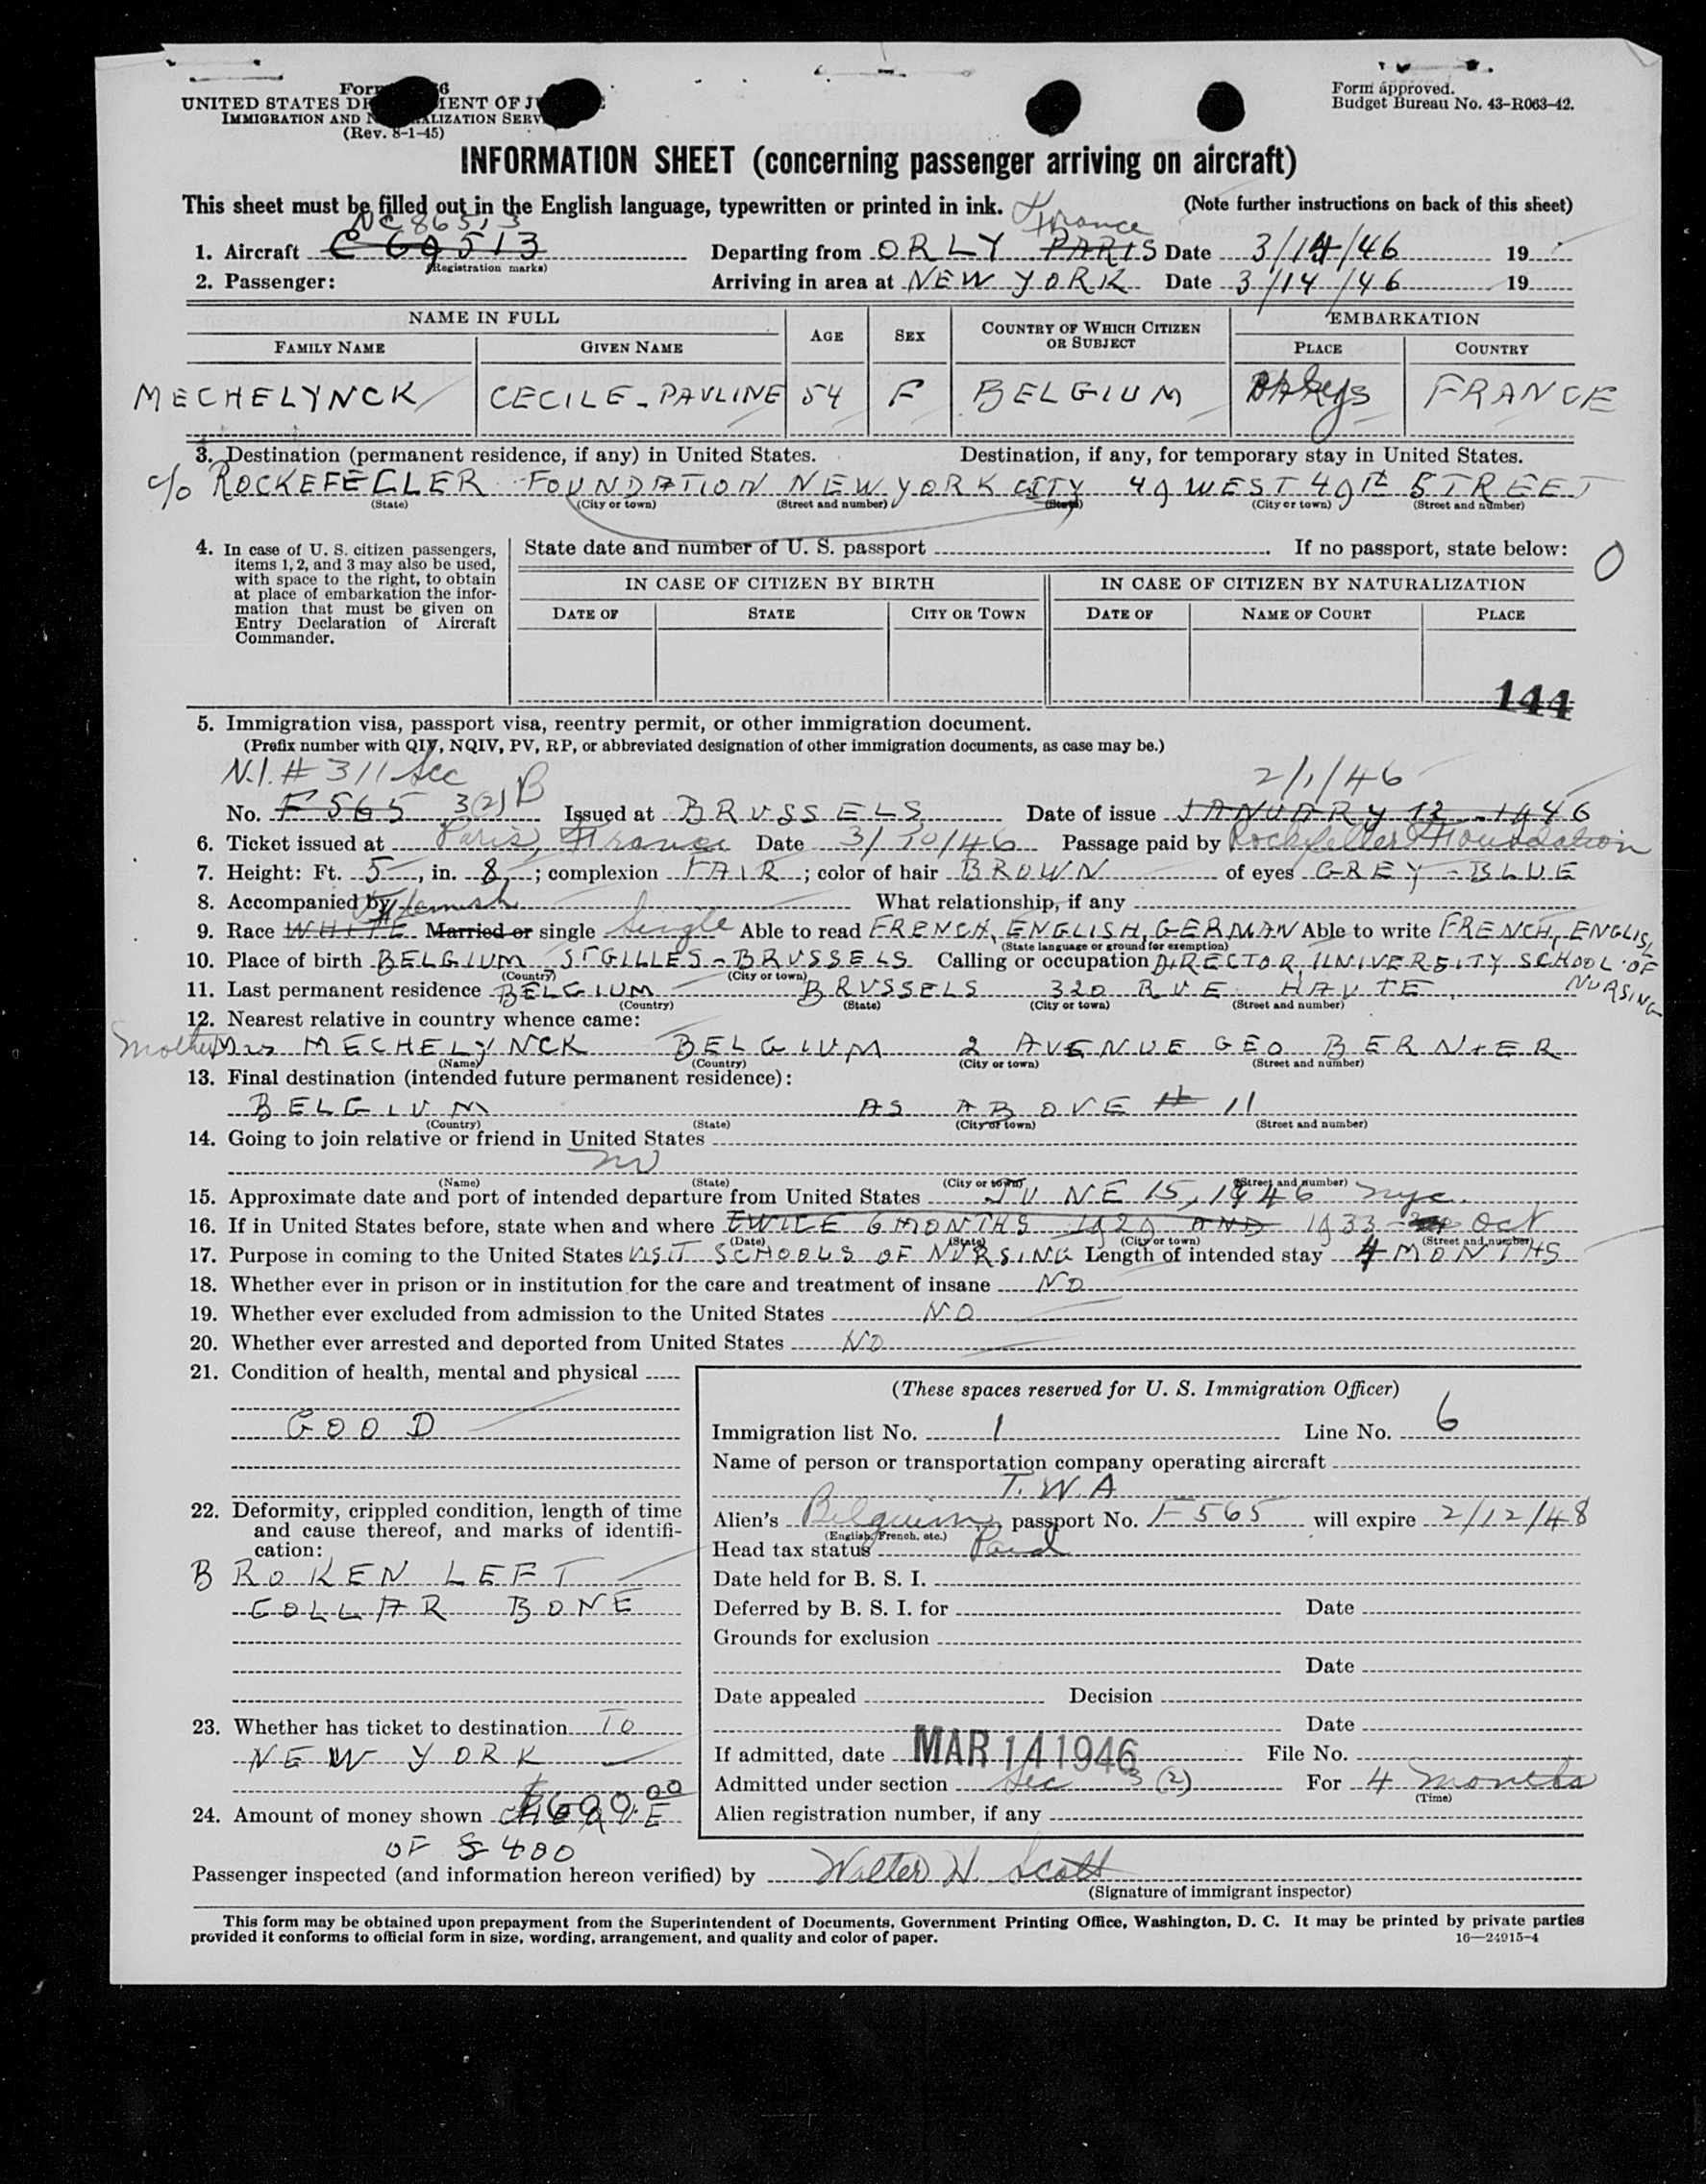 Form 6
UNITED STATES DEPARTMENT OF JUSTICE
IMMIGRATION AND NATURALIZATION SERVICE
(Rev. 8-1-45)
Form approved.
Budget Bureau No. 43-R063-42.
INFORMATION SHEET (concerning passenger arriving on aircraft)
This sheet must be filled out in the English language, typewritten or printed in ink. (Note further instructions on back of this sheet)
NC 86513 France
1. Aircraft C 69513 Departing from ORLY PARIS Date 3/14/46 19
(Registration marks)
2. Passenger: Arriving in area at NEW YORK Date 3/14/46 19
NAME IN FULL AGE SEX COUNTRY OF WHICH CITIZEN OR SUBJECT EMBARKATION
FAMILY NAME GIVEN NAME PLACE COUNTRY
MECHELYNCK CECILE-PAULINE 54 F BELGIUM FRANCE
3. Destination (permanent residence, if any) in United States. Destination, if any, for temporary stay in United States.
c/o ROCKEFELLER FOUNDATION NEW YORK CITY 49 WEST 49th STREET
(State) (City or town) (Street and number) (State) (City or town) (Street and number)
4. In case of U. S. citizen passengers, items 1, 2, and 3 may also be used, with space to the right, to obtain at place of embarkation the information that must be given on Entry Declaration of Aircraft Commander.
State date and number of U. S. passport If no passport, state below: 0
IN CASE OF CITIZEN BY BIRTH IN CASE OF CITIZEN BY NATURALIZATION
DATE OF STATE CITY OR TOWN DATE OF NAME OF COURT PLACE
144
5. Immigration visa, passport visa, reentry permit, or other immigration document.
(Prefix number with QIV, NQIV, PV, RP, or abbreviated designation of other immigration documents, as case may be.)
N.I. # 311 Sec 2/1/46
No. F 565 3(2) B Issued at BRUSSELS Date of issue JANUARY 12 1946
6. Ticket issued at Paris, France Date 3/10/46 Passage paid by Rockefeller Foundation
7. Height: Ft. 5, in. 8; complexion FAIR; color of hair BROWN of eyes GREY-BLUE
8. Accompanied by What relationship, if any
Flemish
9. Race WHITE Married or single Single Able to read FRENCH, ENGLISH, GERMAN Able to write FRENCH, ENGLISH
(State language or ground for exemption)
10. Place of birth BELGIUM ST GILLES-BRUSSELS Calling or occupation DIRECTOR, UNIVERSITY SCHOOL OF NURSING
(Country) (City or town)
11. Last permanent residence BELGIUM BRUSSELS 320 RUE HAUTE
(Country) (State) (City or town) (Street and number)
12. Nearest relative in country whence came:
Mother Mrs MECHELYNCK BELGIUM 2 AVENUE GEO BERNIER
(Name) (Country) (City or town) (Street and number)
13. Final destination (intended future permanent residence):
BELGIUM AS ABOVE # 11
(Country) (State) (City or town) (Street and number)
14. Going to join relative or friend in United States
no
(Name) (State) (City or town) (Street and number)
15. Approximate date and port of intended departure from United States JUNE 15, 1946 nyc.
16. If in United States before, state when and where TWICE 6 MONTHS 1929 AND 1933 Oct
(Date) (State) (City or town) (Street and number)
17. Purpose in coming to the United States VISIT SCHOOLS OF NURSING Length of intended stay 4 MONTHS
18. Whether ever in prison or in institution for the care and treatment of insane NO
19. Whether ever excluded from admission to the United States NO
20. Whether ever arrested and deported from United States NO
21. Condition of health, mental and physical
GOOD
22. Deformity, crippled condition, length of time and cause thereof, and marks of identification:
BROKEN LEFT
COLLAR BONE
23. Whether has ticket to destination TO
NEW YORK
$600.00
24. Amount of money shown
OF $ 400
(These spaces reserved for U. S. Immigration Officer)
Immigration list No. 1 Line No. 6
Name of person or transportation company operating aircraft
T. W. A
Alien's Belgium passport No. F565 will expire 2/12/48
(English, French, etc.)
Head tax status Paid
Date held for B. S. I.
Deferred by B. S. I. for Date
Grounds for exclusion
Date
Date appealed Decision
Date
If admitted, date MAR 14 1946 File No.
Admitted under section Sec 3 (2) For 4 months
(Time)
Alien registration number, if any
Passenger inspected (and information hereon verified) by Walter H. Scott
(Signature of immigrant inspector)
This form may be obtained upon prepayment from the Superintendent of Documents, Government Printing Office, Washington, D. C. It may be printed by private parties
provided it conforms to official form in size, wording, arrangement, and quality and color of paper. 16—24915-4